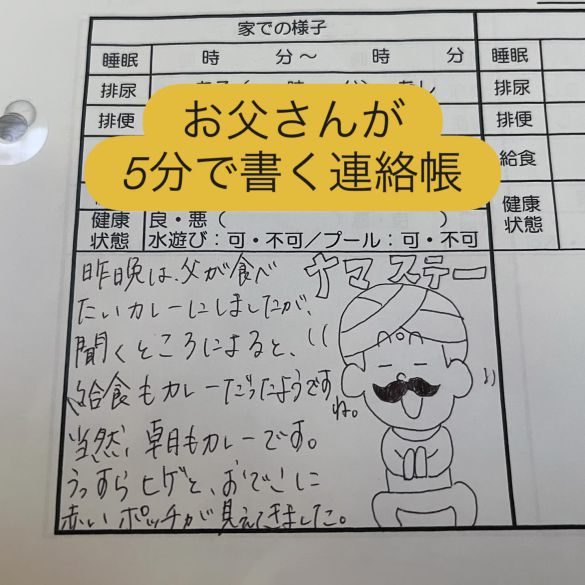 家での様子
睡眠 時 分〜 時 分 睡眠
排尿 排尿
排便 排便
お父さんが
5分で書く連絡帳
給食
健康状態 良・悪( )
水遊び:可・不可/プール:可・不可
健康状態
ナマステー
昨晩は、父が食べ
たいカレーにしましたが、
聞くところによると、
給食もカレーだったようです
ね。
当然、朝もカレーです。
うっすらヒゲと、おでこに
赤いポッチが見えてきました。